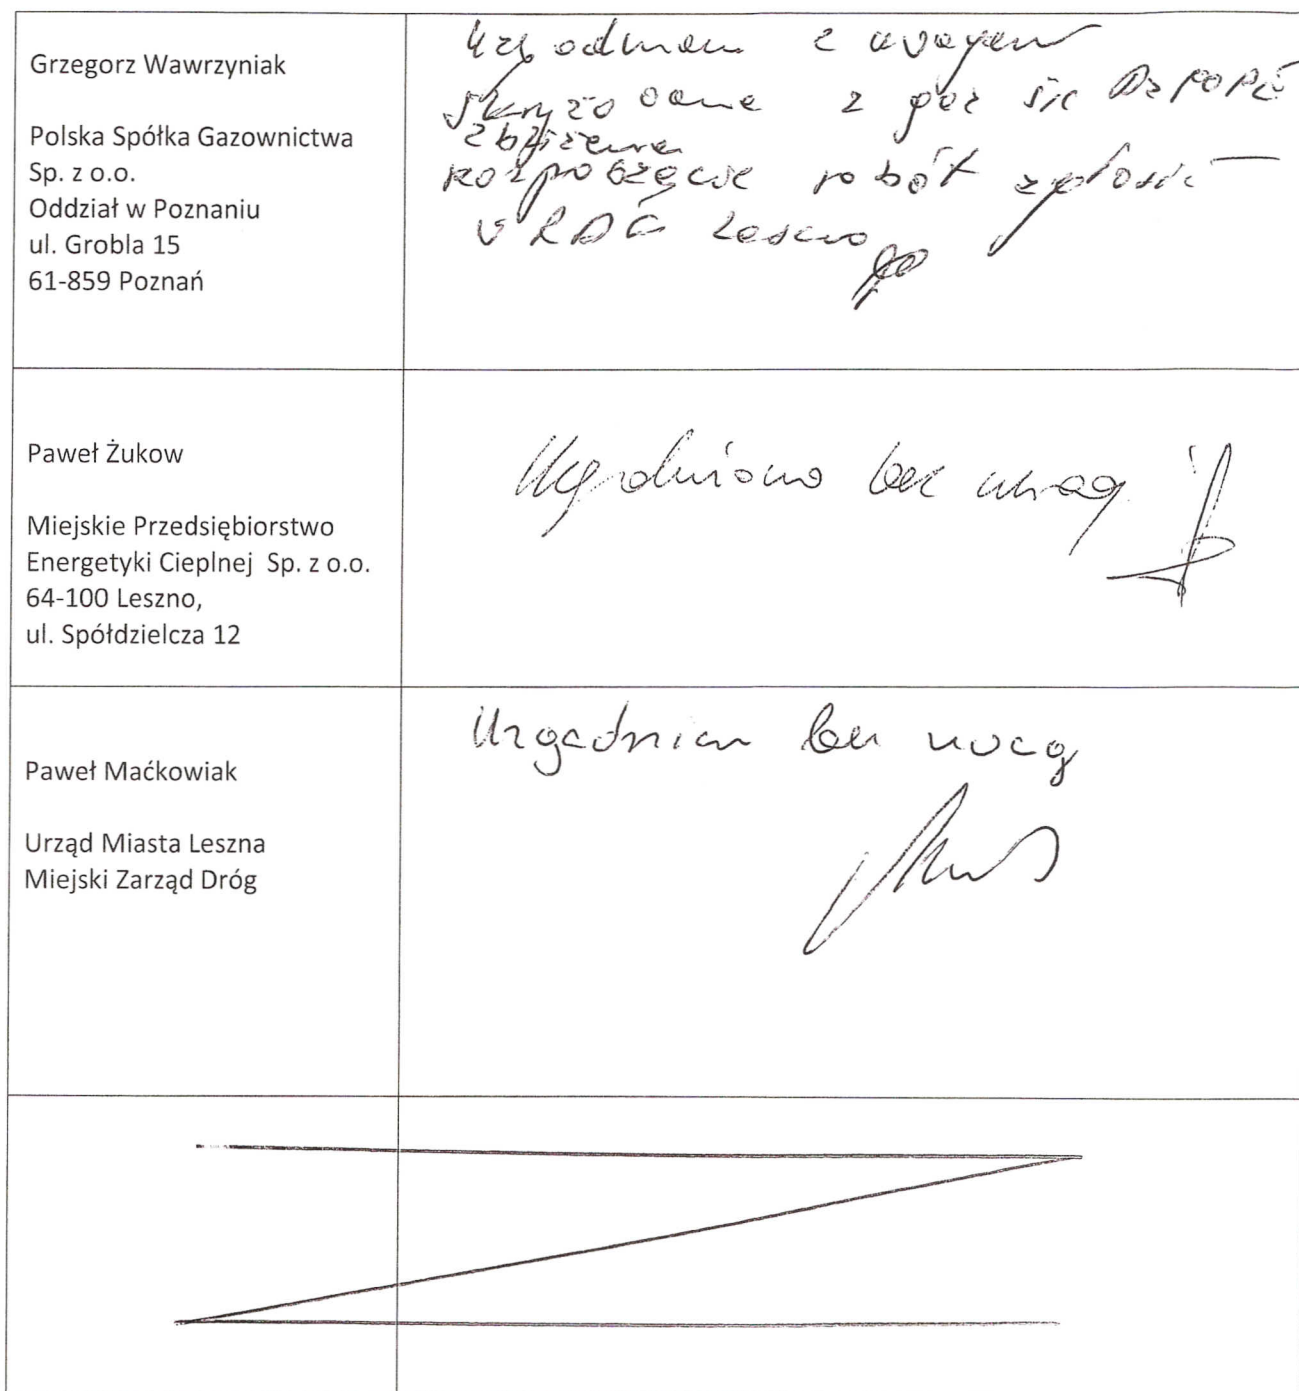 Grzegorz Wawrzyniak
Polska Spółka Gazownictwa
Sp. z o.o.
Oddział w Poznaniu
ul. Grobla 15
61-859 Poznań
z uwagami
z gaz
zbliżenia
rozpoczęcie robót zgłosić
w RDG Leszno
Paweł Żukow
Miejskie Przedsiębiorstwo
Energetyki Cieplnej Sp. z o.o.
64-100 Leszno,
ul. Spółdzielcza 12
Uzgodniono bez uwag
Paweł Maćkowiak
Urząd Miasta Leszna
Miejski Zarząd Dróg
Uzgadniam bez uwag